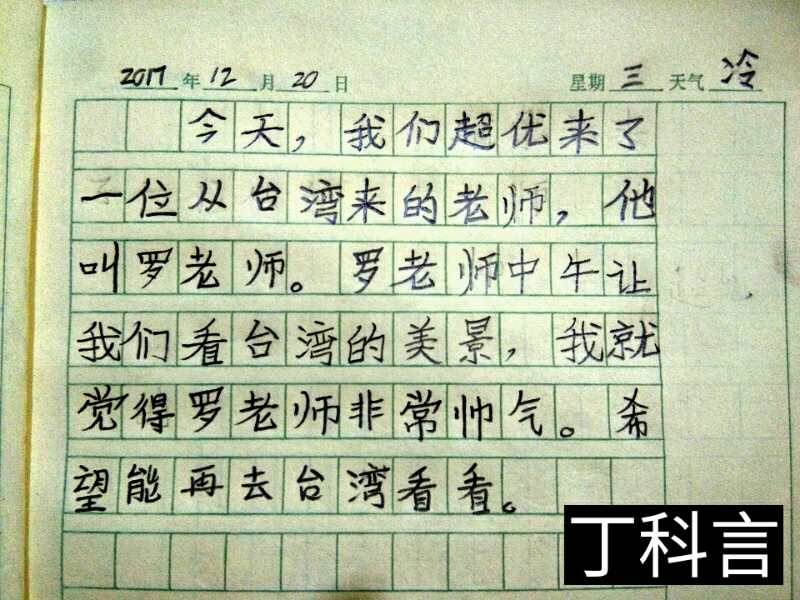 2017年12月20日 星期三天气冷
今天，我们超优来了
一位从台湾来的老师，他
叫罗老师。罗老师中午让
我们看台湾的美景，我就
觉得罗老师非常帅气。希
望能再去台湾看看。
丁科言